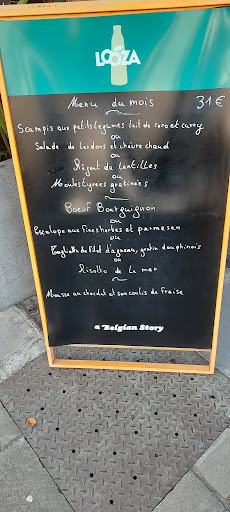 LOOZA
Menu du mois 31€
Scampis aux petits légumes lait de coco et curry
ou
Salade de lardons et chèvre chaud
ou
Régent de lentilles
ou
Moules tigrées gratinées
Boeuf Bourguignon
ou
Escalope aux fines herbes et parmesan
ou
de filet d'agneau, gratin dauphinois
ou
Risotto de la mer
Mousse au chocolat et son coulis de fraise
a Belgian Story